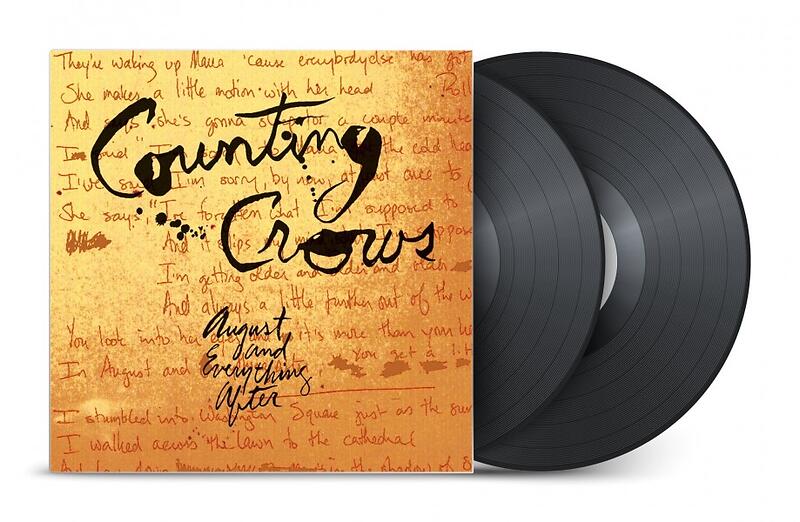 They're waking up Maria 'cause everybodyelse has got
She makes a little motion with her head Roll
And says she's gonna sleep for a couple minute
Counting
I said I'm sorry to the cold hea
I've I'm sorry, by now, at not able to
She says "I've forgotten what I'm supposed to
Crows
And it slips my
I'm getting older and older and older
And always a little further out of the w
August
and
Everything
After
You look into her eyes it's more than your he
In August and You get a lit
I stumbled into Washington Square just as the sun
I walked across the lawn to the cathedral
And in the shadow of S